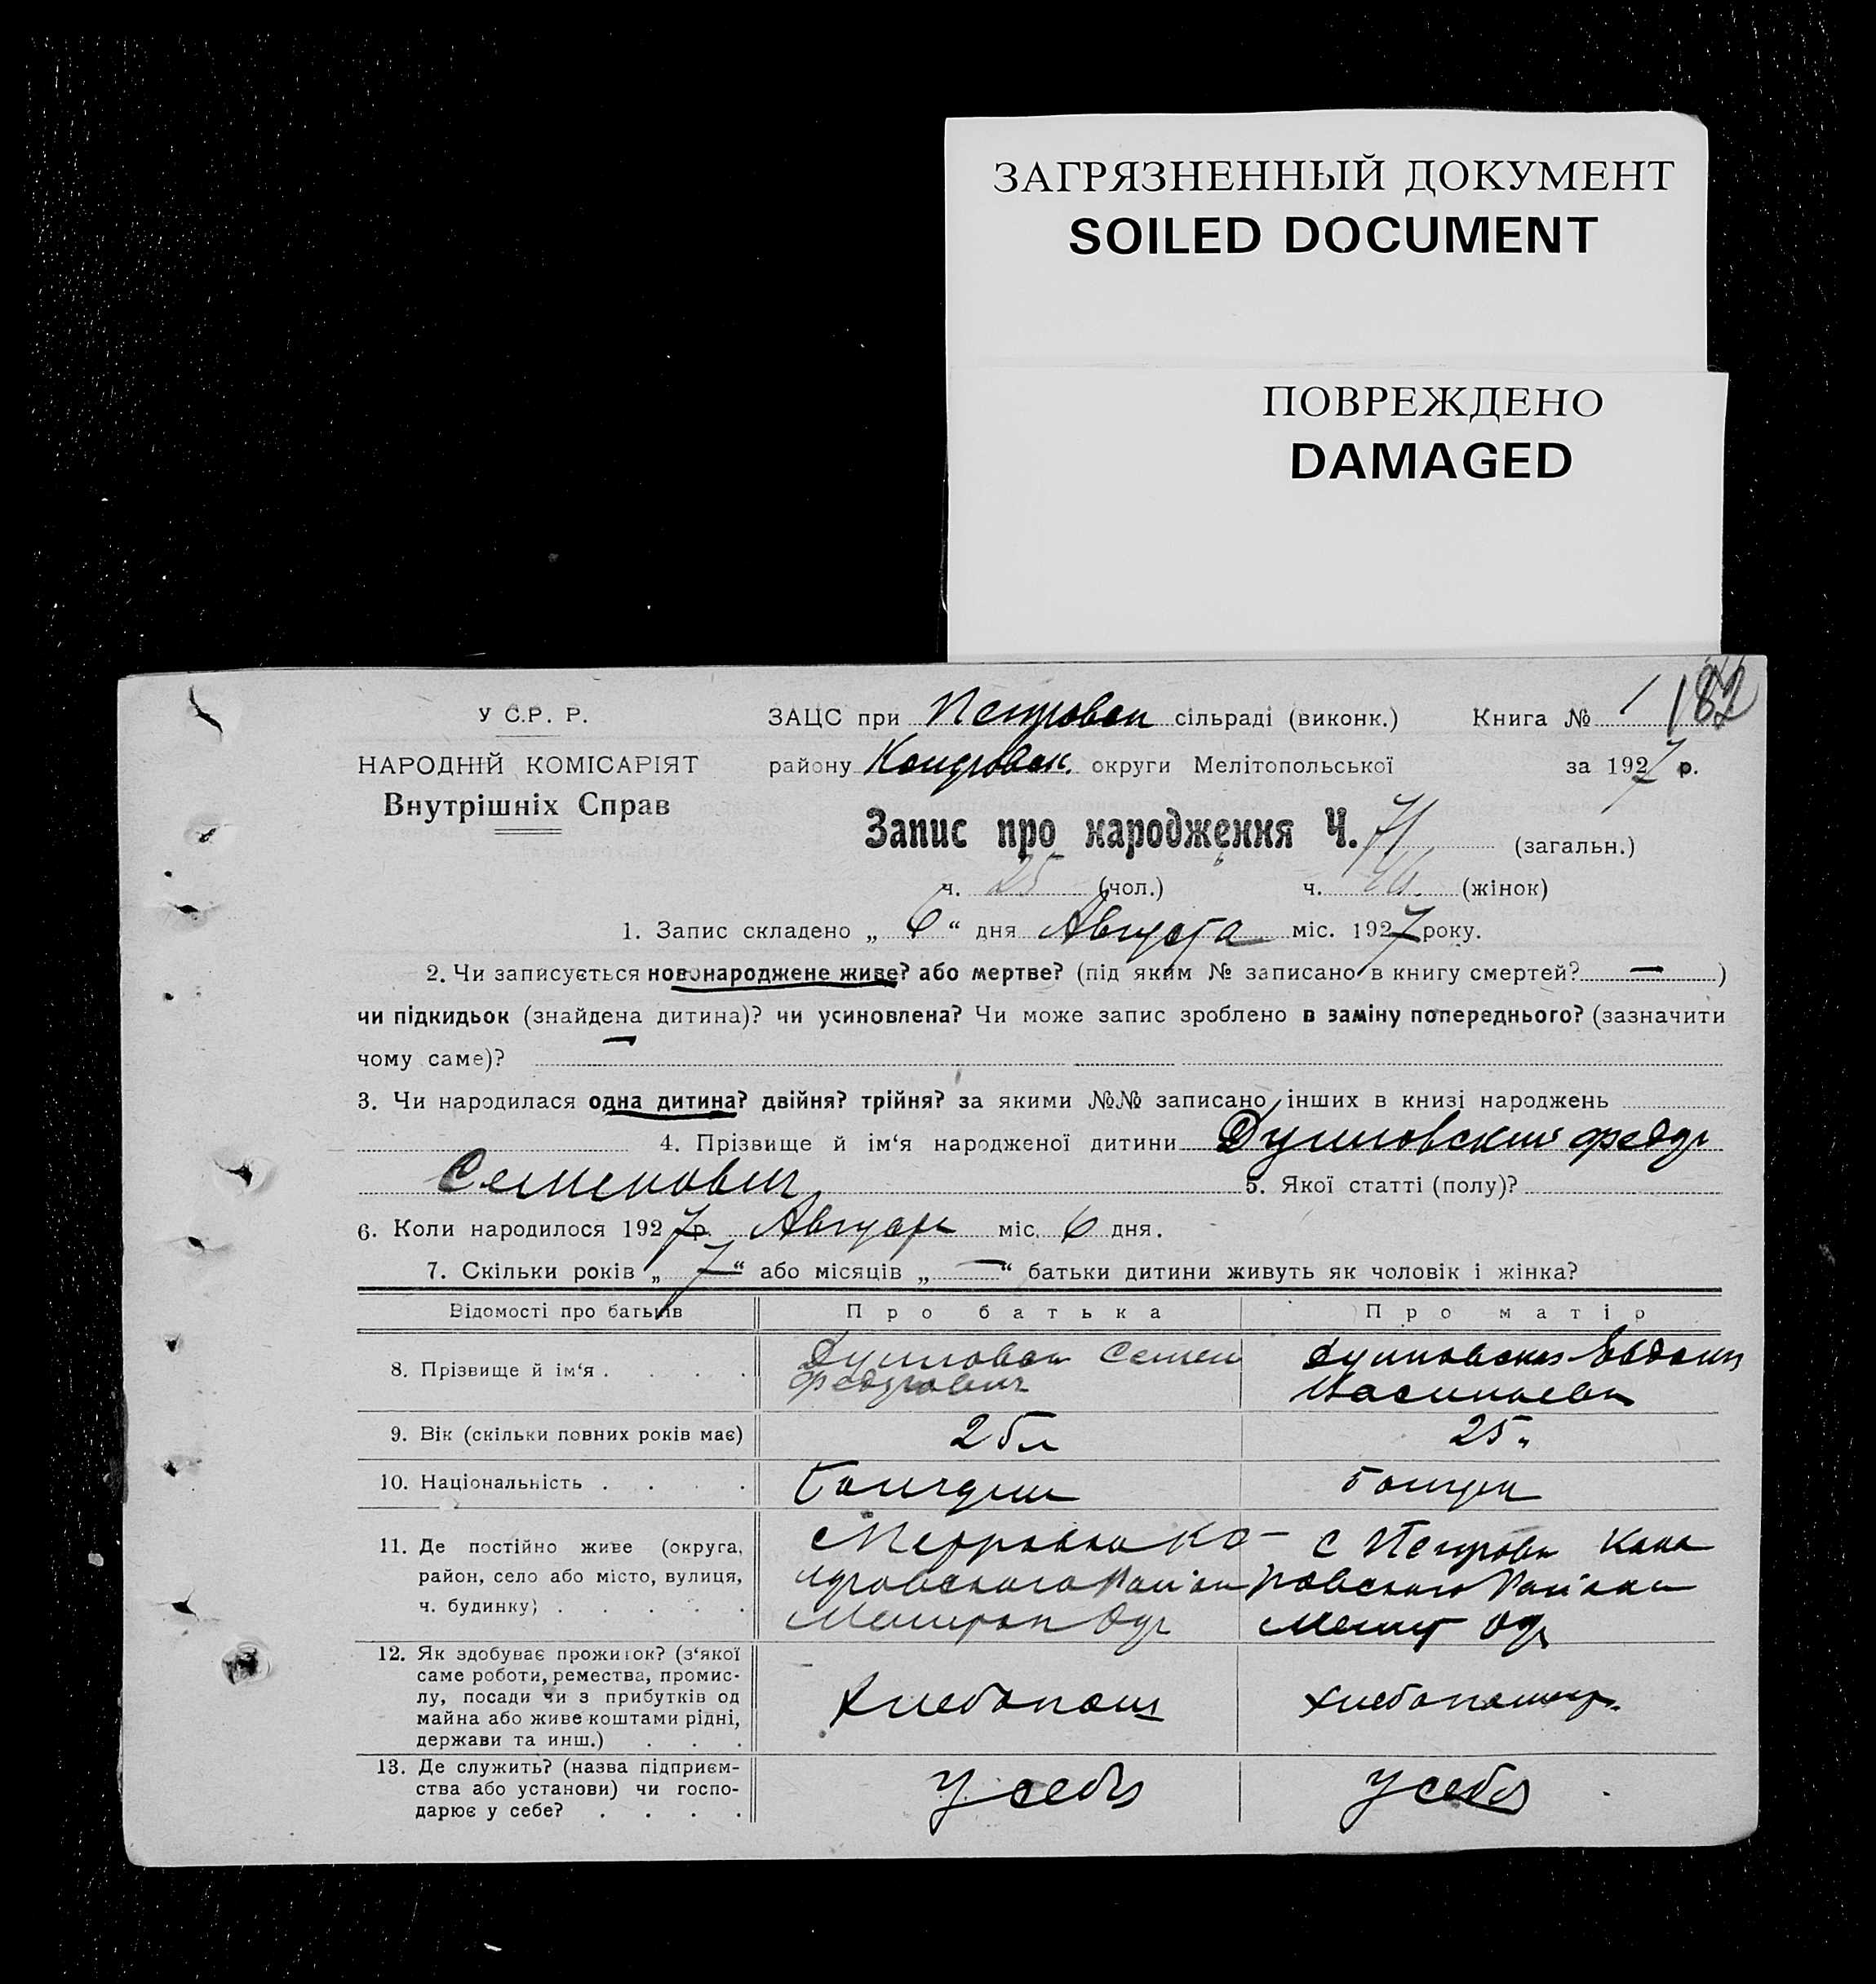 ЗАГРЯЗНЕННЫЙ ДОКУМЕНТ
SOILED DOCUMENT
ПОВРЕЖДЕНО
DAMAGED
У С.Р. Р.
НАРОДНІЙ КОМІСАРІЯТ
Внутрішніх Справ
ЗАЦС при Петровск сільраді (виконк.) Книга № 1 182
району округи Мелітопольської за 1927 р.
Запис про народження Ч. 71 (загальн.)
ч. 25 (чол.) ч. 46 (жінок)
1. Запис складено „ 6 “ дня Августа міс. 1927 року.
2. Чи записується новонароджене живе? або мертве? (під яким № записано в книгу смертей? — )
чи підкидьок (знайдена дитина)? чи усиновлена? Чи може запис зроблено в заміну попереднього? (зазначити
чому саме)? —
3. Чи народилася одна дитина? двійня? трійня? за якими №№ записано інших в книзі народжень
4. Прізвище й ім‘я народженої дитини Федор
Семенович 5. Якої статті (полу)?
6. Коли народилося 1927 р. Август міс. 6 дня.
7. Скільки років „ 7 “ або місяців „ — “ батьки дитини живуть як чоловік і жінка?
Відомості про батьків Про батька Про матір
8. Прізвище й ім‘я . . . . Семен
Федорович
9. Вік (скільки повних років має) 25 л 25 л
10. Національність . . . .
11. Де постійно живе (округа,
район, село або місто, вулиця,
ч. будинку) . . . . .
с Петровка Ко-
ндровского Район
Мелитоп Окр
с Петровк
ровского Района
Мелит Окр
12. Як здобуває прожиток? (з‘якої
саме роботи, ремества, промис-
лу, посади чи з прибутків од
майна або живе коштами рідні,
держави та инш.) . . .
Хлебопаш
хлебопашец
13. Де служить? (назва підприєм-
ства або установи) чи госпо-
дарює у себе? . . . .
У себя
У себя